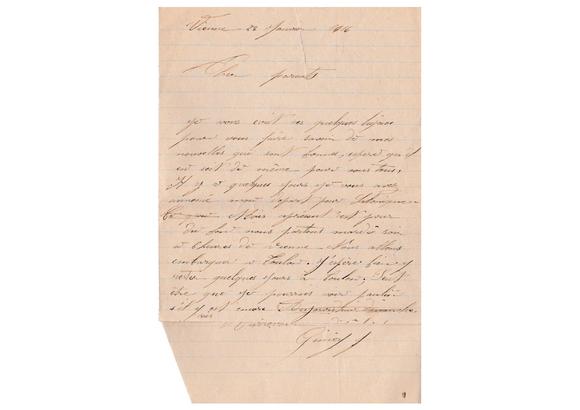 Vienne 28 Janvier 1916
Cher parents
Je vous ecrit ces quelques lignes
pour vous faire savoir de mes
nouvelles qui sont bonnes, espere qu'il
en soit de même pour vous tous,
Il y a quelques jours je vous avez
annoncé mon depart pour Salonique
Alors apresent c'est pour
du bon nous partons mardi soir
a 6 heures de Vienne. Nous allons
embarquer a Toulon. J'espère bien y
rester quelques jours à Toulon, Peut
être que je pourrais voir
s'il y est encore